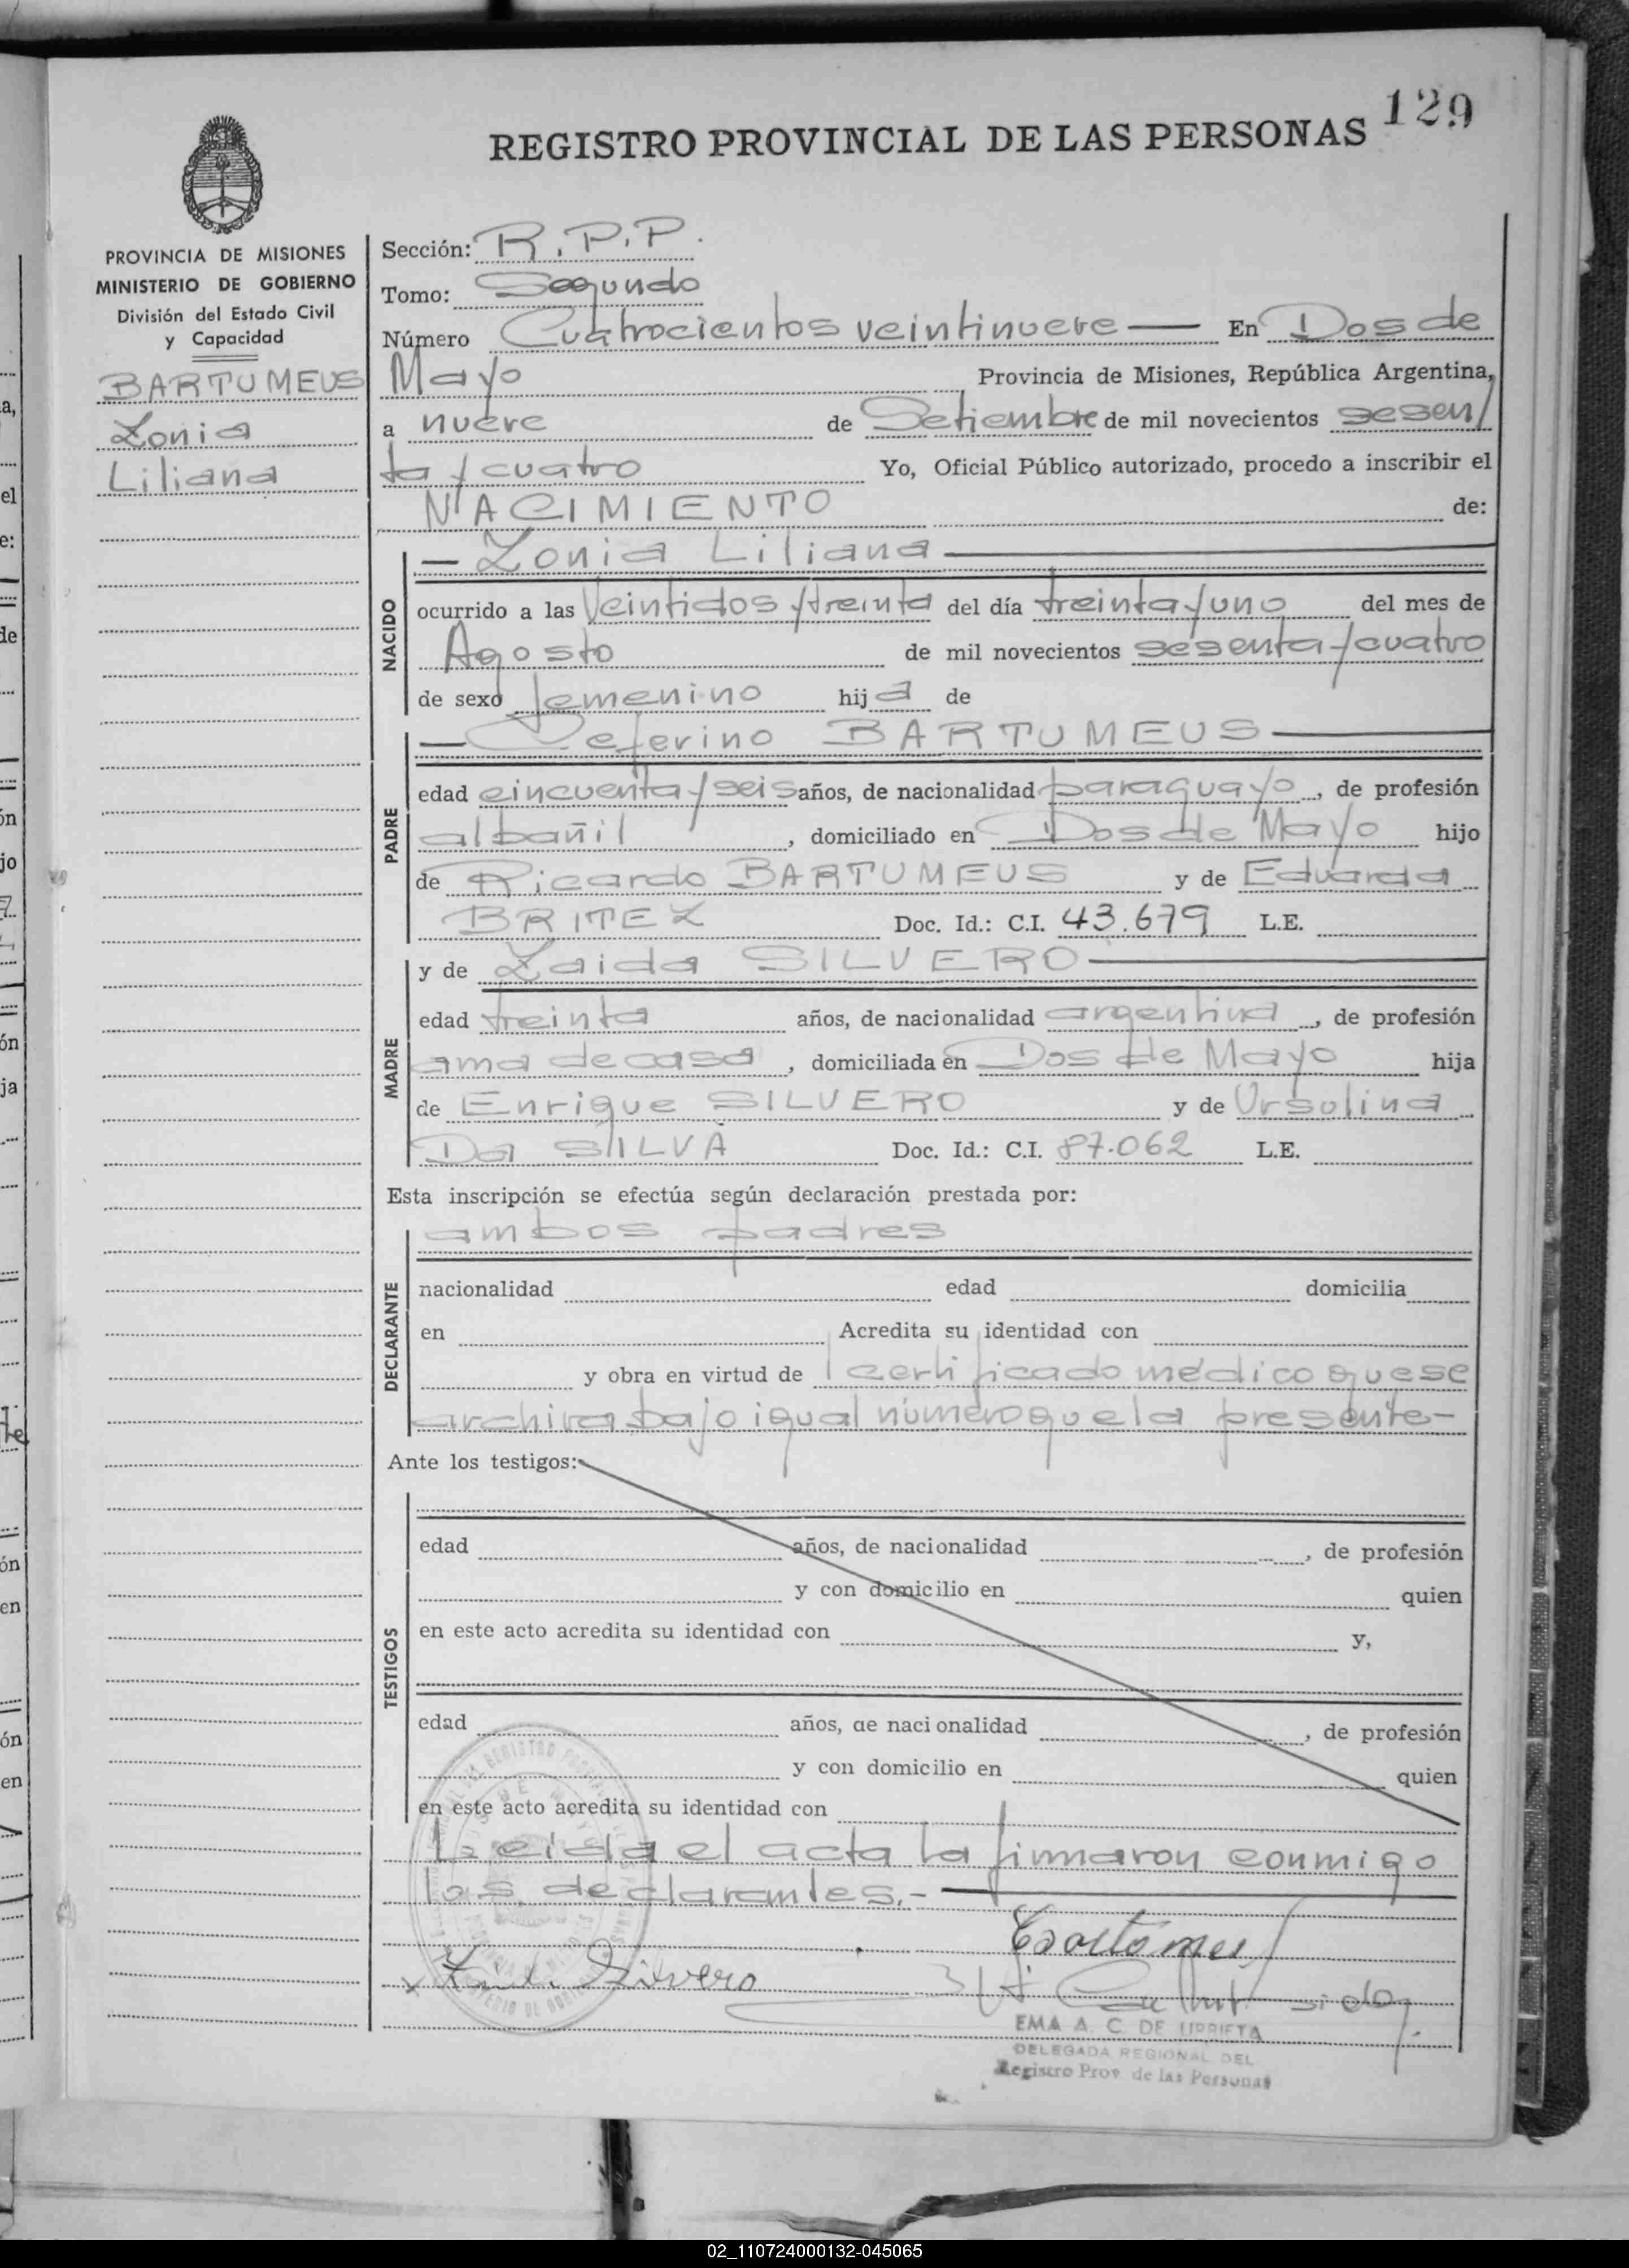 129
REGISTRO PROVINCIAL DE LAS PERSONAS
PROVINCIA DE MISIONES
MINISTERIO DE GOBIERNO
División del Estado Civil
y Capacidad
BARTUMEUS
Zonia
Liliana
Sección: R.P.P.
Tomo: Segundo
Número Cuatrocientos veintinueve — En Dos de
Mayo Provincia de Misiones, República Argentina,
a nueve de Setiembre de mil novecientos sesen/
ta y cuatro Yo, Oficial Público autorizado, procedo a inscribir el
NACIMIENTO de:
NACIDO
— Zonia Liliana —
ocurrido a las Veintidos y treinta del día treinta y uno del mes de
Agosto de mil novecientos sesenta y cuatro
de sexo femenino hija de
PADRE
— Ceferino BARTUMEUS —
edad cincuenta y seis años, de nacionalidad paraguayo, de profesión
albañil, domiciliado en Dos de Mayo hijo
de Ricardo BARTUMEUS y de Eduarda
BRITEZ Doc. Id.: C.I. 43.679 L.E.
MADRE
y de Zaida SILVERO —
edad treinta años, de nacionalidad argentina, de profesión
ama de casa, domiciliada en Dos de Mayo hija
de Enrique SILVERO y de Ursolina
Da SILVA Doc. Id.: C.I. 87.062 L.E.
Esta inscripción se efectúa según declaración prestada por:
DECLARANTE
ambos padres
nacionalidad edad domicilia
en Acredita su identidad con
y obra en virtud de certificado médico que se
archiva bajo igual número que la presente-
Ante los testigos:
TESTIGOS
edad años, de nacionalidad , de profesión
y con domicilio en quien
en este acto acredita su identidad con y,
edad años, de nacionalidad , de profesión
y con domicilio en quien
en este acto acredita su identidad con
Leida el acta la firmaron conmigo
los declarantes.-
Silvero
EMA A. C. DE URRIETA
DELEGADA REGIONAL DEL
Registro Prov. de las Personas
02_110724000132-045065